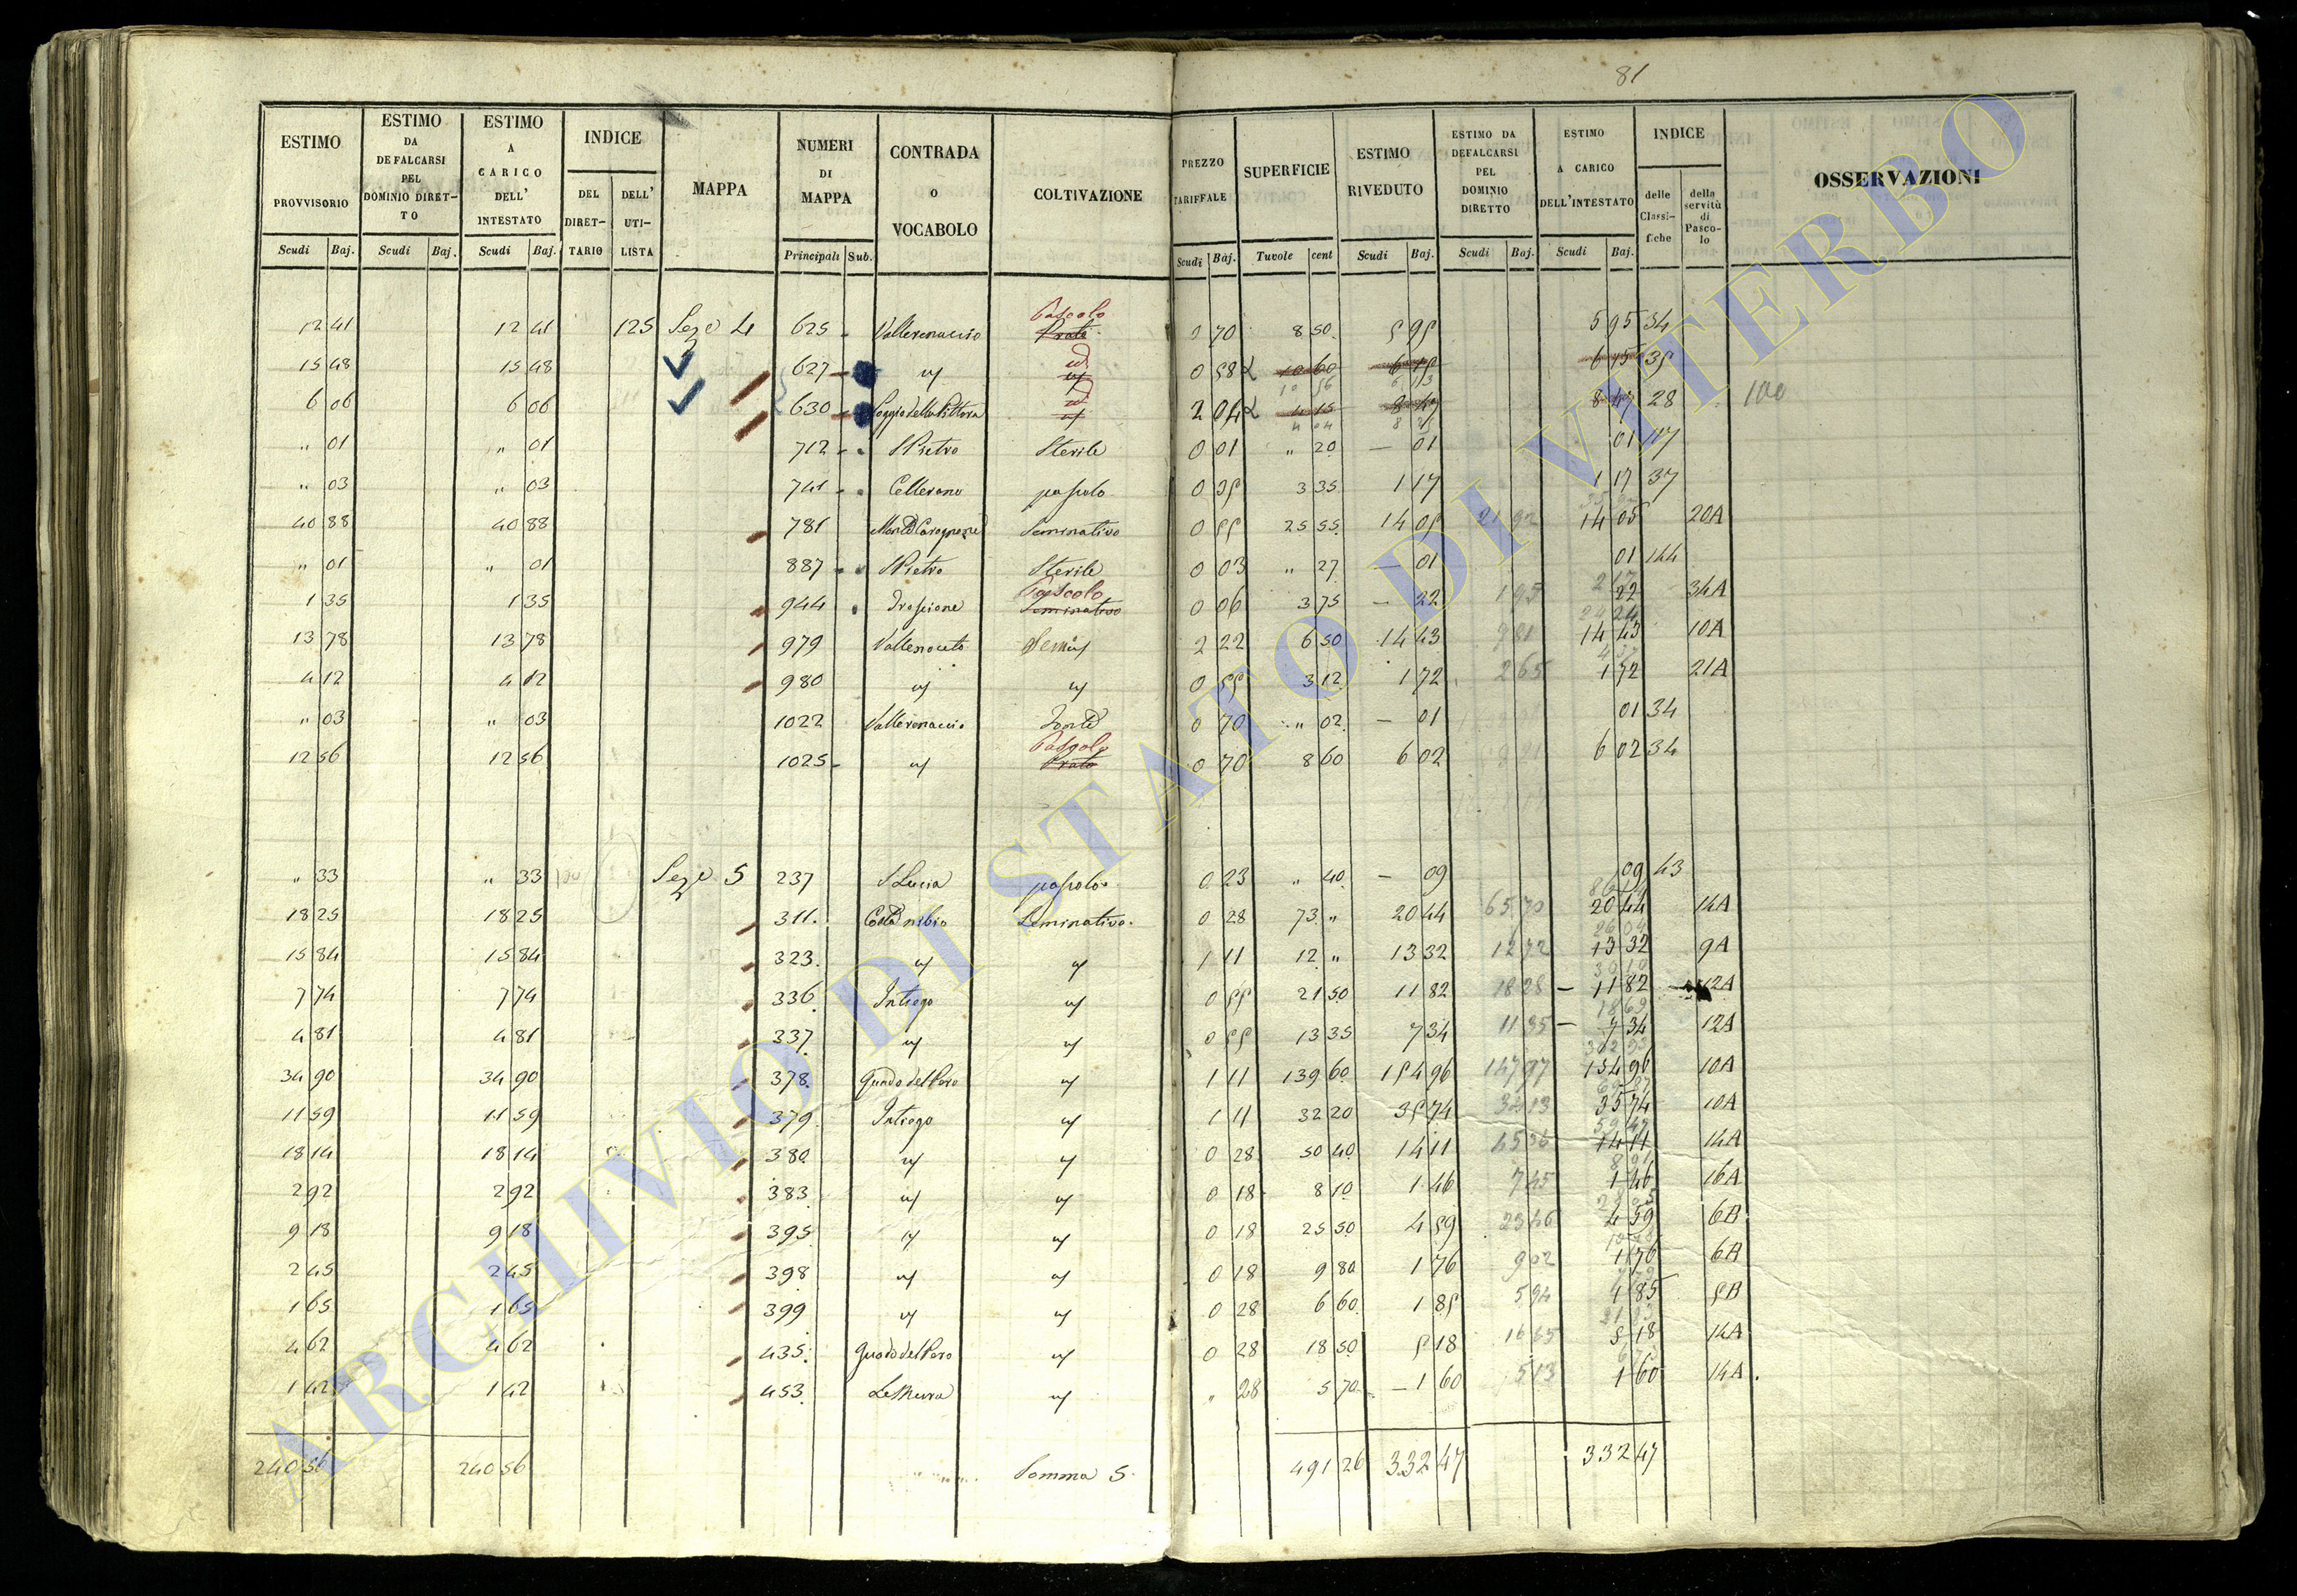 81
ESTIMO PROVVISORIO | ESTIMO DA DEFALCARSI PEL DOMINIO DIRETTO | ESTIMO A CARICO DELL' INTESTATO | INDICE DEL DIRETTARIO | DELL' UTILISTA | MAPPA | NUMERI DI MAPPA | CONTRADA O VOCABOLO | COLTIVAZIONE | PREZZO TARIFFALE | SUPERFICIE | ESTIMO RIVEDUTO | ESTIMO DA DEFALCARSI PEL DOMINIO DIRETTO | ESTIMO A CARICO DELL'INTESTATO | INDICE delle Classifiche | della servitù di Pascolo | OSSERVAZIONI
Scudi | Baj. | Scudi | Baj. | Scudi | Baj. | Principali | Sub. | Scudi | Baj. | Tavole | cent | Scudi | Baj. | Scudi | Baj. | Scudi | Baj.
12 41 | 12 41 | 125 | Sez. 4 | 625 | Pascolo Prato | 0 70 | 8 50 | 5 95 | 5 95 | 34
15 48 | 15 48 | 627 | 0 58 | 10 60 | 10 56 | 6 15 | 6 13 | 6 15 | 35
6 06 | 6 06 | 630 | 2 04 | 4 15 | 4 04 | 8 47 | 8 47 | 28 | 100
" 01 | " 01 | 712 | S Pietro | Sterile | 0 01 | " 20 | — 01 | 01
" 03 | " 03 | 741 | Cellerano | pascolo | 0 35 | 3 35 | 1 17 | 1 17 | 37
40 88 | 40 88 | 781 | Seminativo | 0 55 | 25 55 | 14 05 | 21 92 | 14 05 | 20A
" 01 | " 01 | 887 | S Pietro | Sterile | 0 03 | " 27 | — 01 | 01 | 144
1 35 | 1 35 | 944 | Pascolo Seminativo | 0 06 | 3 75 | — 22 | 1 95 | 22 | 34A
13 78 | 13 78 | 979 | 2 22 | 6 50 | 14 43 | 9 81 | 14 43 | 10A
4 12 | 4 12 | 980 | 0 55 | 3 12 | 1 72 | 2 65 | 1 72 | 21A
" 03 | " 03 | 1022 | 0 70 | " 02 | — 01 | 01 | 34
12 56 | 12 56 | 1025 | Pascolo Prato | 0 70 | 8 60 | 6 02 | 6 02 | 34
" 33 | " 33 | Sez. 5 | 237 | S Lucia | pascolo | 0 23 | " 40 | — 09 | 09 | 43
18 25 | 18 25 | 311 | Seminativo | 0 28 | 73 " | 20 44 | 65 70 | 20 44 | 14A
15 84 | 15 84 | 323 | 1 11 | 12 " | 13 32 | 12 72 | 13 32 | 9A
7 74 | 7 74 | 336 | 0 55 | 21 50 | 11 82 | 18 28 | 11 82 | 12A
4 81 | 4 81 | 337 | 0 55 | 13 35 | 7 34 | 11 35 | 7 34 | 12A
34 90 | 34 90 | 378 | Guado del Pero | 1 11 | 139 60 | 154 96 | 147 97 | 154 96 | 10A
11 59 | 11 59 | 379 | 1 11 | 32 20 | 35 74 | 34 13 | 35 74 | 10A
18 14 | 18 14 | 380 | 0 28 | 50 40 | 14 11 | 14 11 | 14A
2 92 | 2 92 | 383 | 0 18 | 8 10 | 1 46 | 7 45 | 1 46 | 16A
9 18 | 9 18 | 395 | 0 18 | 25 50 | 4 59 | 23 46 | 4 59 | 6B
2 45 | 2 45 | 398 | 0 18 | 9 80 | 1 76 | 9 02 | 1 76
1 65 | 1 65 | 399 | 0 28 | 6 60 | 1 85 | 5 94 | 1 85 | 5B
4 62 | 4 62 | 435 | Guado del Pero | 0 28 | 18 50 | 5 18 | 16 65 | 5 18 | 14A
1 42 | 1 42 | 453 | " 28 | 5 70 | — 1 60 | 5 13 | 1 60 | 14A
240 56 | 240 56 | Somma S. | 491 26 | 332 47 | 332 47
ARCHIVIO DI STATO DI VITERBO